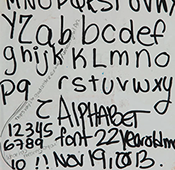 MNOPQRSTUVWX
YZabbcdef
ghijkKLmno
pq rstuvwxy
z ALPHABET
12345 font 22 year old me
6789
10 !! Nov 19, 2013.